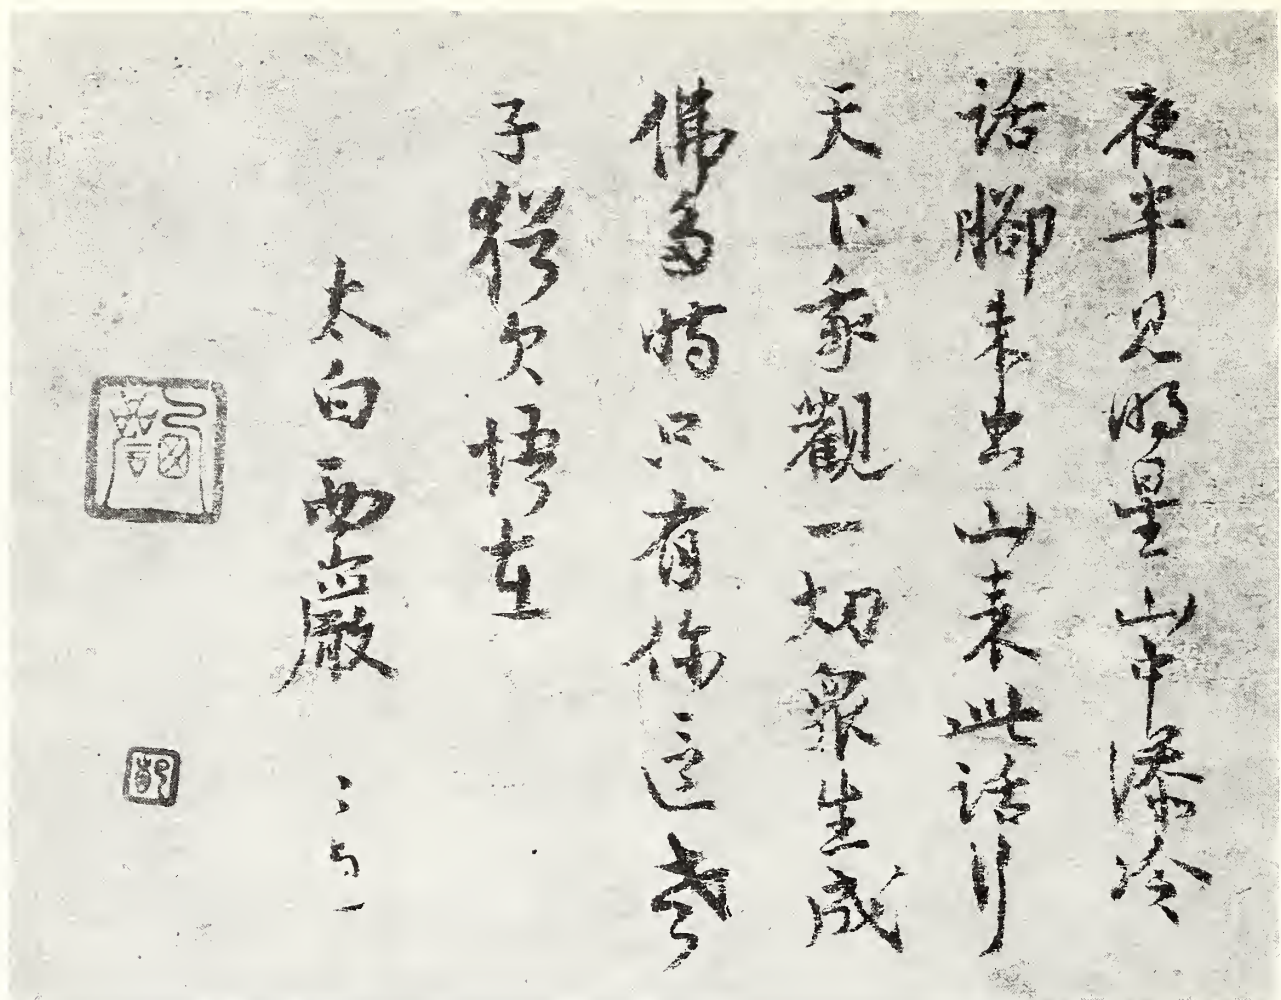 夜半見明星山中添冷
話腳未出山来此話行
天下我觀一切衆生成
佛多時只有你這老
子猶欠悟在
太白西巖